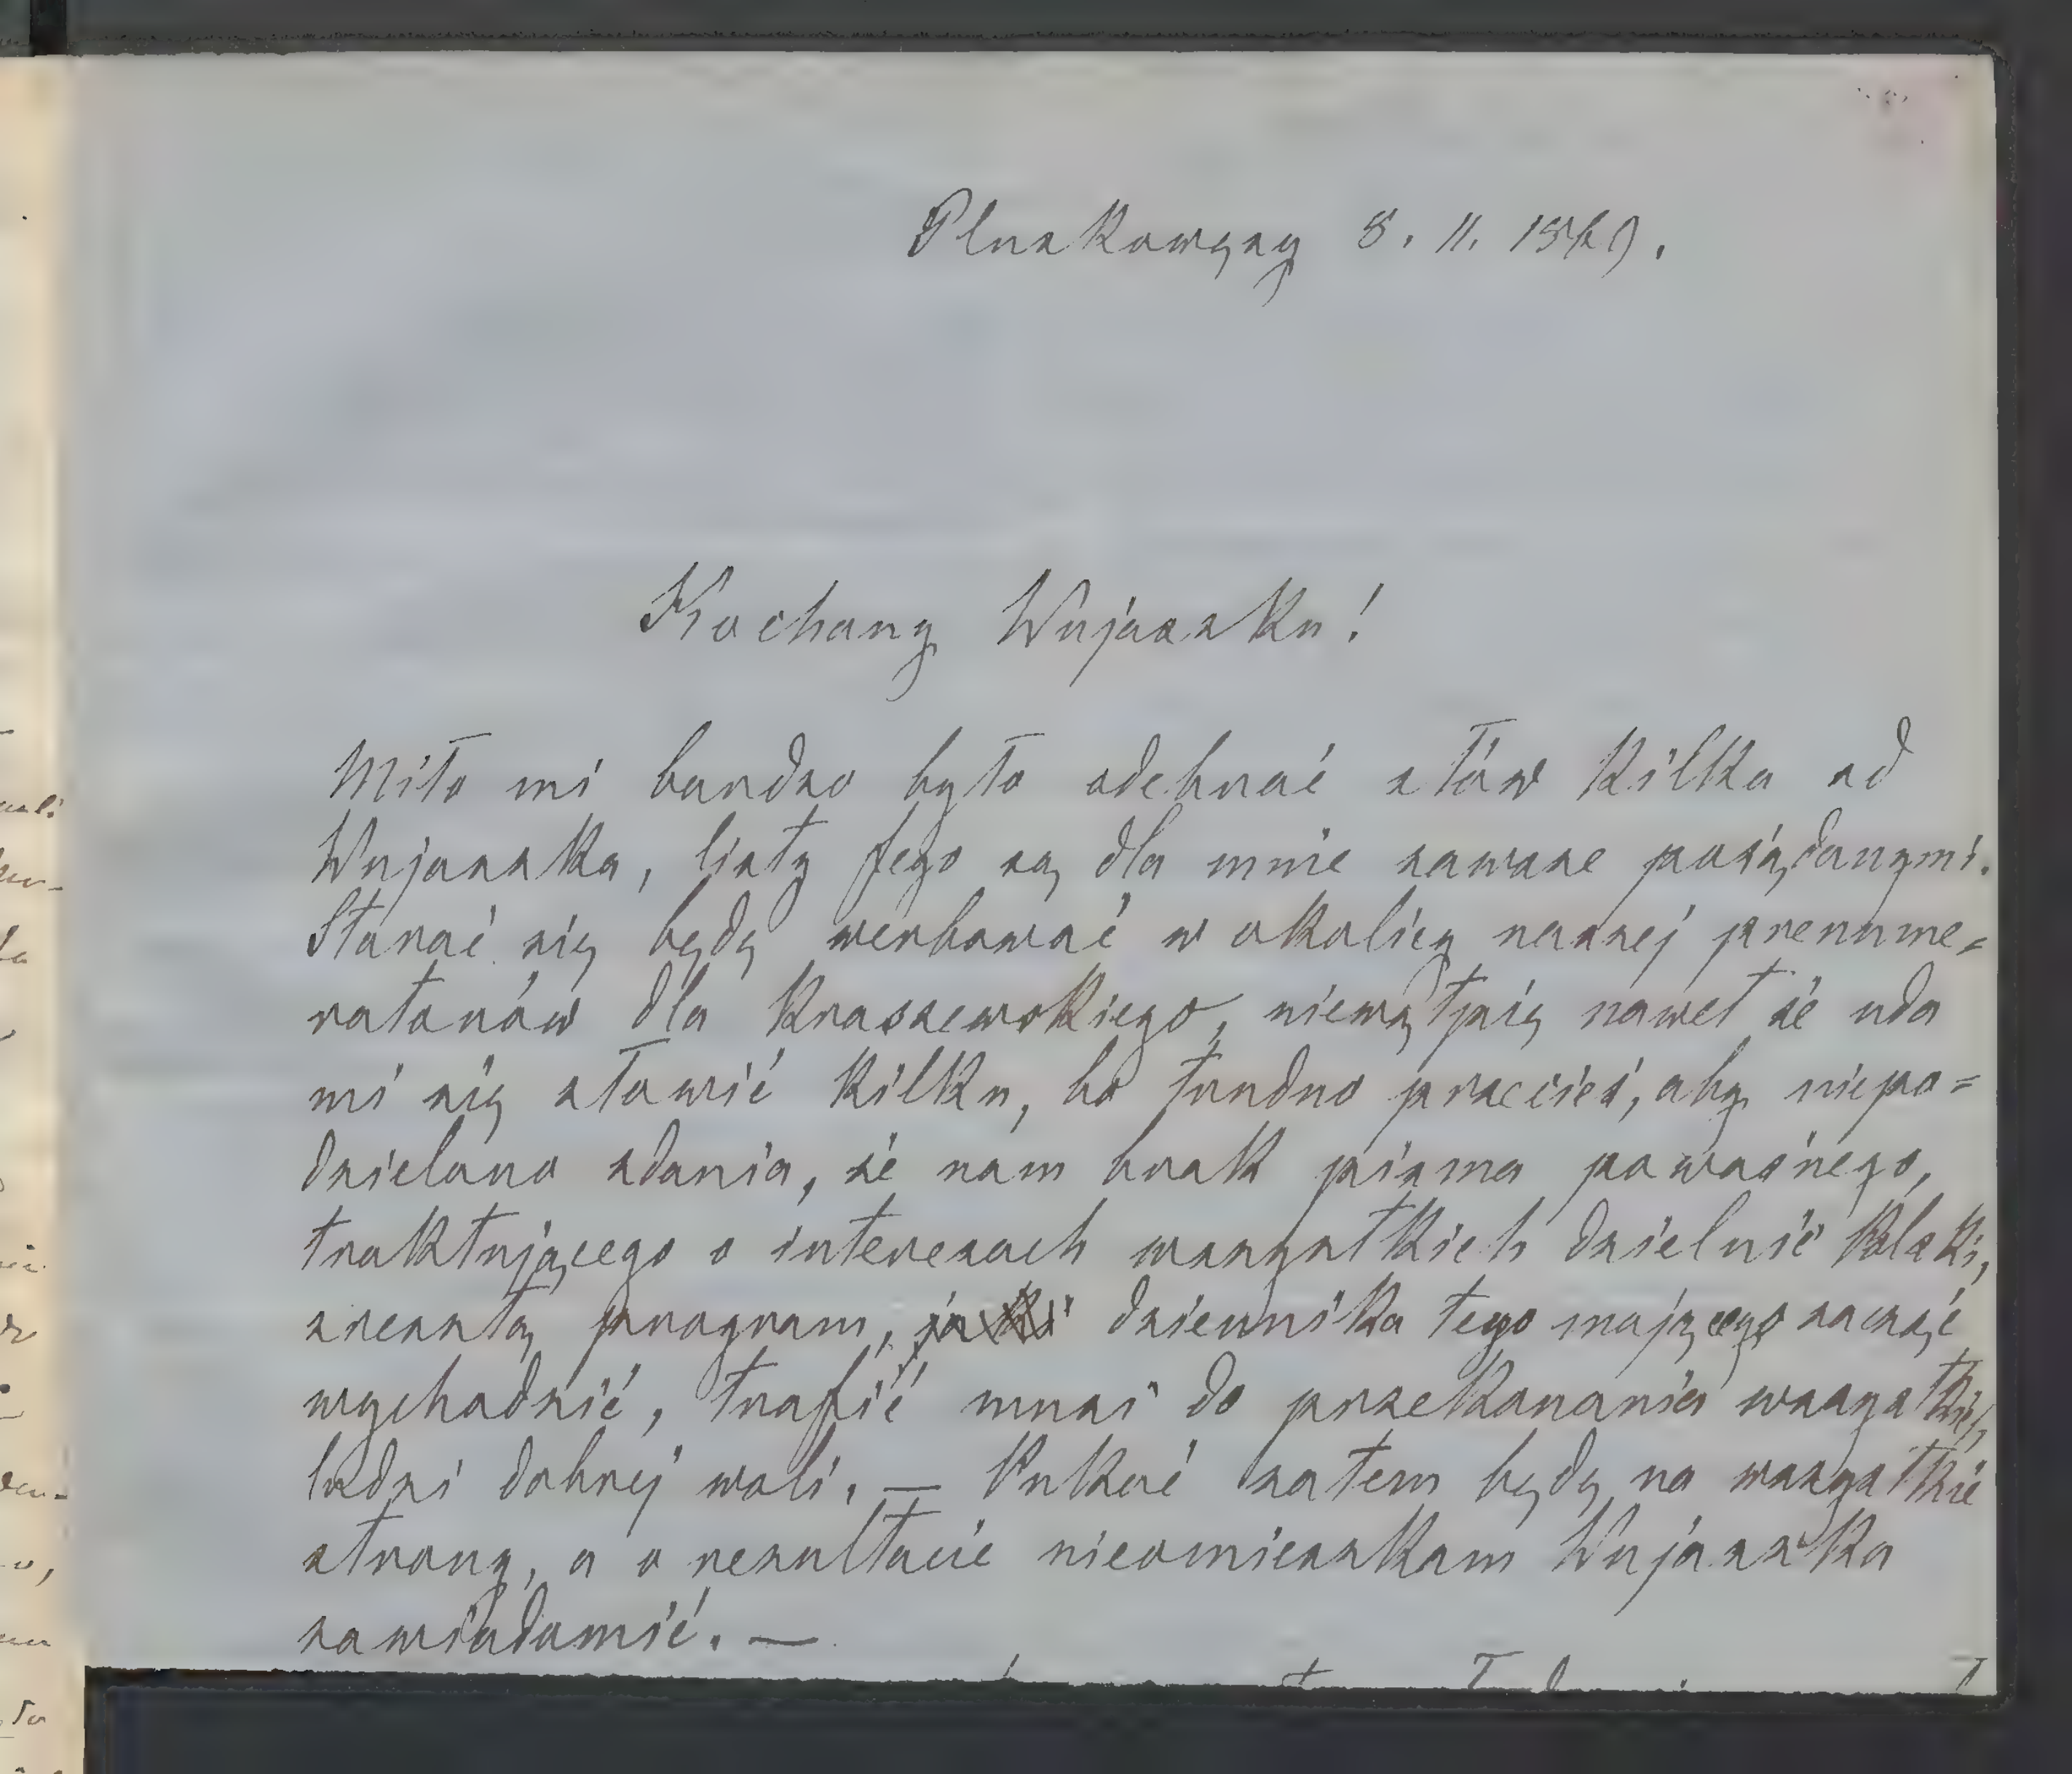 Pluskowęsy 8. 11. 1869.
Kochany Wujaszku!
Miło mi bardzo było odebrać słów kilka od
Wujaszka, listy Jego są dla mnie zawsze pożądanymi.
Starać się będę werbować w okolicy naszej prenume=
ratorów dla Kraszewskiego, niewątpię nawet że uda
mi się złowić kilku, bo trudno przecież, aby niepo=
dzielano zdania, że nam brak pisma poważnego,
traktującego o interesach wszystkich dzielnic Polski,
zresztą program, dziennika tego mającego zacząć
wychodzić, trafić musi do przekonania wszystkich
ludzi dobrej woli. — Pukać zatem będę na wszystkie
strony, a o rezultacie nieomieszkam Wujaszka
zawiadomić. —